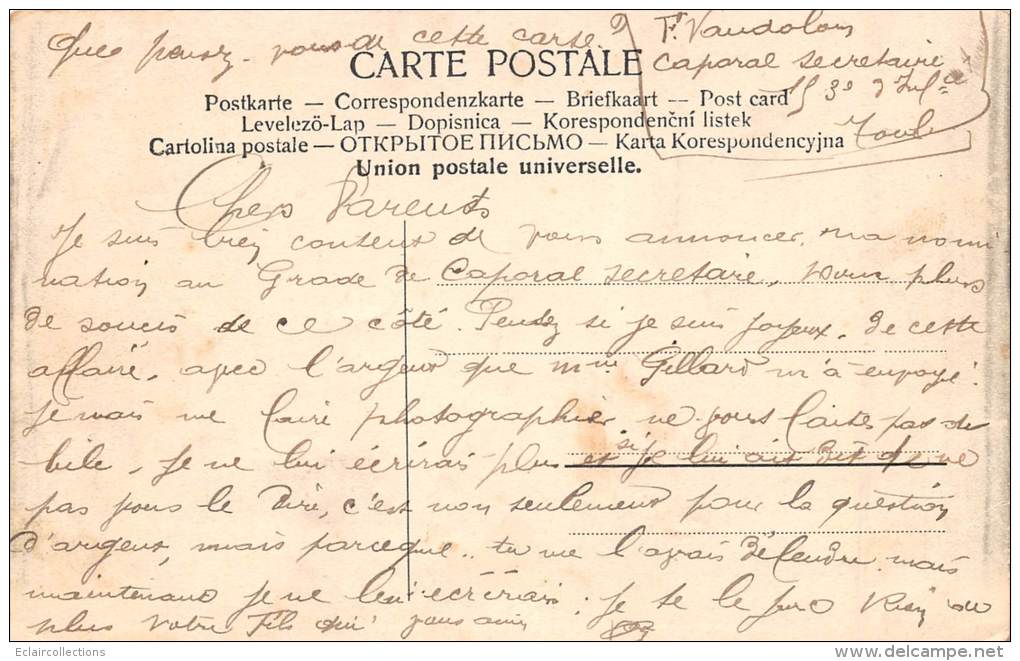 Que pensez-vous de cette carte?
F. Vandolon
Caporal secretaire
153e d'Inf
Toul
CARTE POSTALE
Postkarte — Correspondenzkarte — Briefkaart — Post card
Levelező-Lap — Dopisnica — Korespondenční listek
Cartolina postale — ОТКРЫТОЕ ПИСЬМО — Karta Korespondencyjna
Union postale universelle.
Chers Parents
Je suis très content de vous annoncer ma nomi
nation au Grade de Caporal secretaire, plus
de soucis de ce côté. Pensez si je suis joyeux, de cette
affaire, avec l'argent que mme Gillard m'a envoyé
je vais me faire photographier ne vous faites pas de
bile, je ne lui écrirais plus si je lui ait dit de ne
pas vous le dire, c'est non seulement pour la question
d'argent, mais parceque tu me l'avais défendu mais
maintenant je ne lui écrirais je te le jure Rien de
plus votre Fils qui vous aime
Eclaircollections